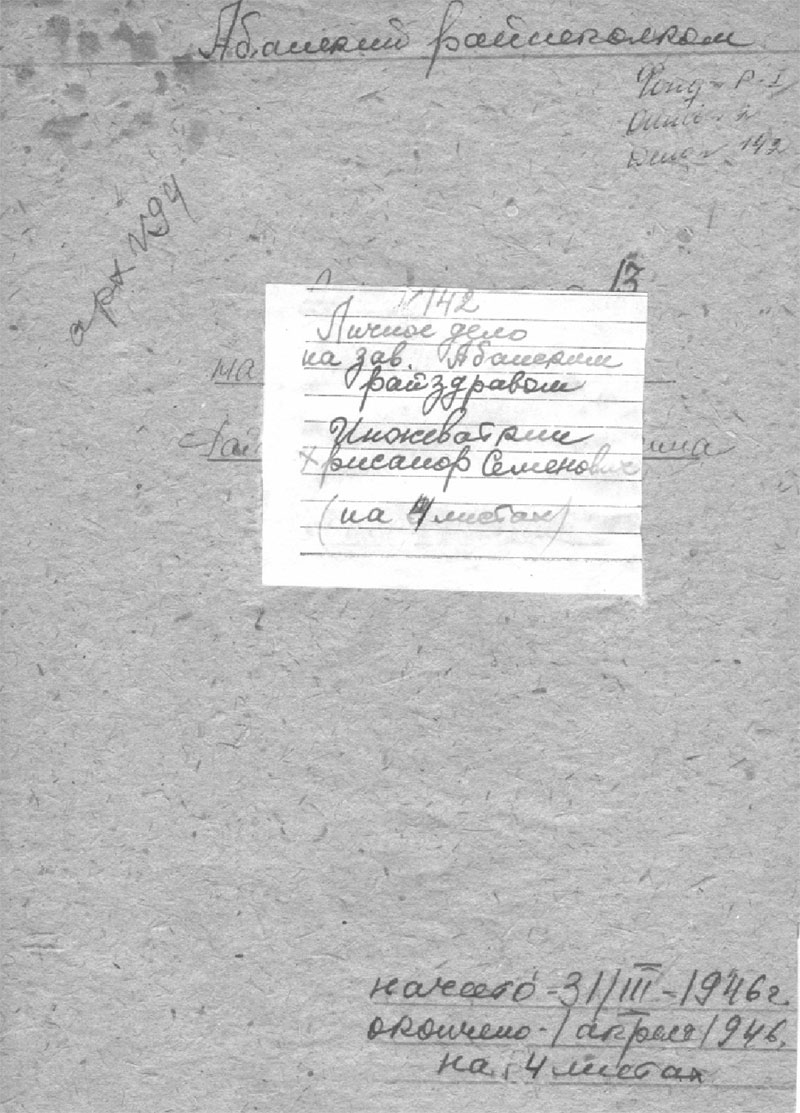 Абанский райисполком
Фонд - Р-1
Опись - 2
Дело - 142
арх №94
13
142
Личное дело
на зав. Абанским
райздравом
Инокеваткин
Хрисанор Семенович
(на 4 листах)
на
начато - 31/III - 1946 г.
окончено - 1 апреля 1946.
на 4 листах